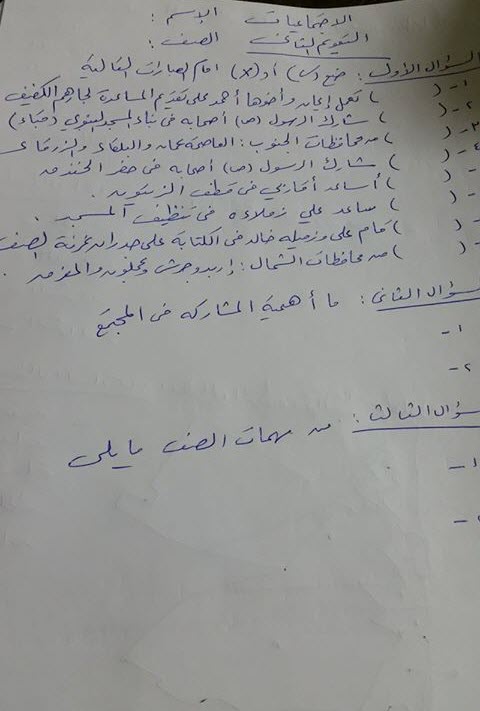 الاجتماعيات الإسم :
التقويم الثاني الصف :
السؤال الأول : ضع (✓) أو (x) أمام العبارات التالية
١- ( ) تعمل إيمان وأخوها أحمد على تقديم المساعدة لجارهم الكفيف
٢- ( ) شارك الرسول (ص) أصحابه في بناء المسجد النبوي (قباء)
٣- ( ) من محافظات الجنوب : العاصمة عمان والبلقاء والزرقاء
٤- ( ) شارك الرسول (ص) أصحابه في حفر الخندق
- ( ) أساعد أقاربي في قطف الزيتون .
- ( ) ساعد علي زملاءه في تنظيف المسجد .
- ( ) قام علي وزميله خالد في الكتابة على جدران غرفة الصف
- ( ) من محافظات الشمال : إربد وجرش وعجلون والمفرق .
سؤال الثاني : ما أهمية المشاركة في المجتمع
١-
٢-
سؤال الثالث : من مهمات الصف ما يلي
١-